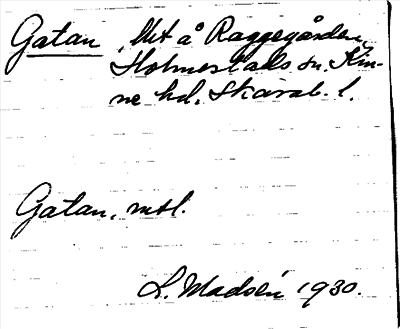 Gatan, lht å Raggegården,
Holmestads sn. Kin-
ne hd. Skarab. l.
Gatan, mtl.
L. Madsén 1930.